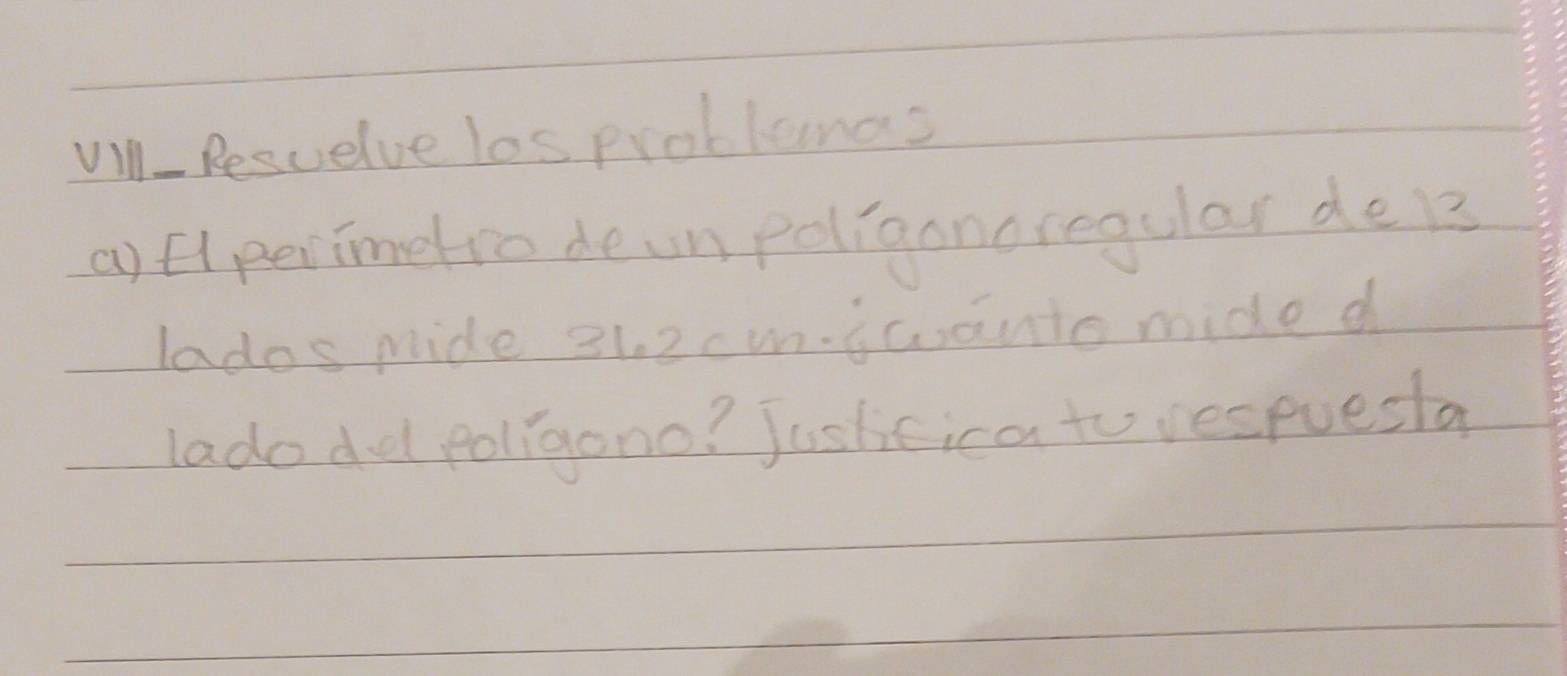 VIII_ Resuelve los problemas
a) El perímetro de un polígono regular de 13
lados mide 31.2 cm. ¿cuánto mide el
lado del polígono? Justifica tu respuesta